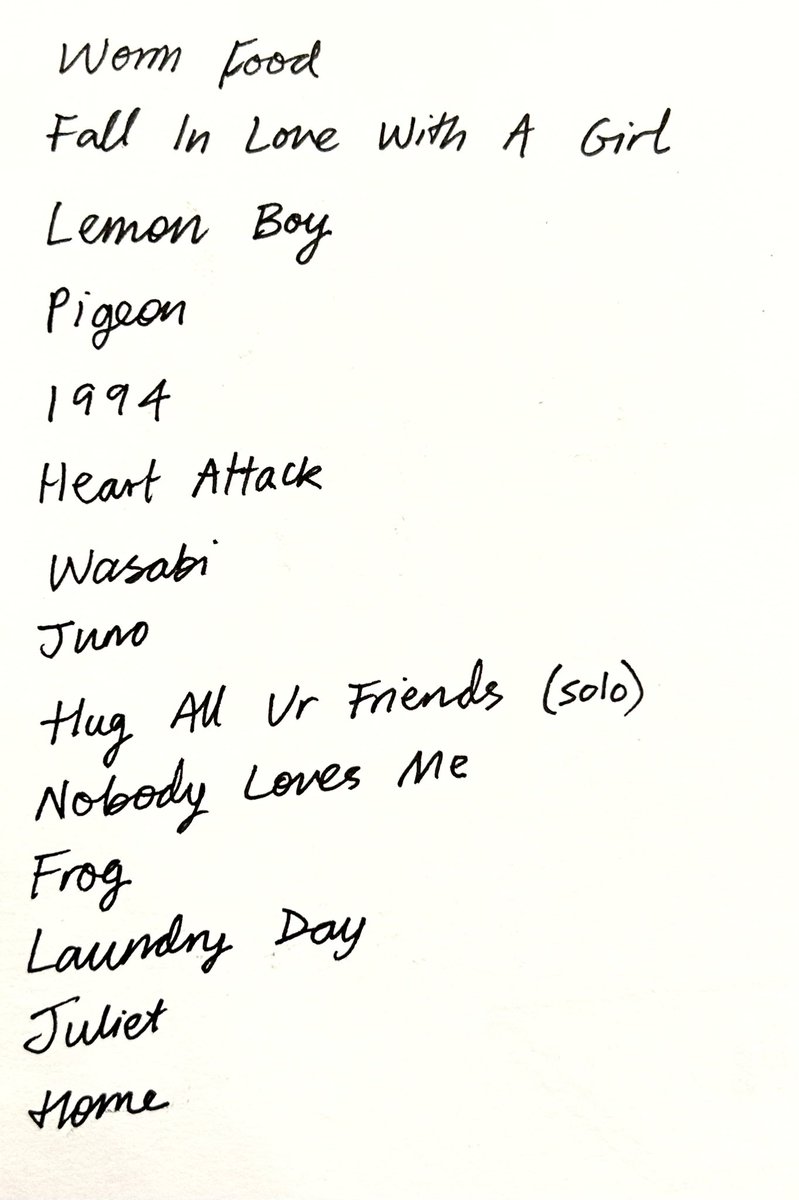 Worm Food
Fall In Love With A Girl
Lemon Boy
Pigeon
1994
Heart Attack
Wasabi
Juno
Hug All Ur Friends (solo)
Nobody Loves Me
Frog
Laundry Day
Juliet
Home